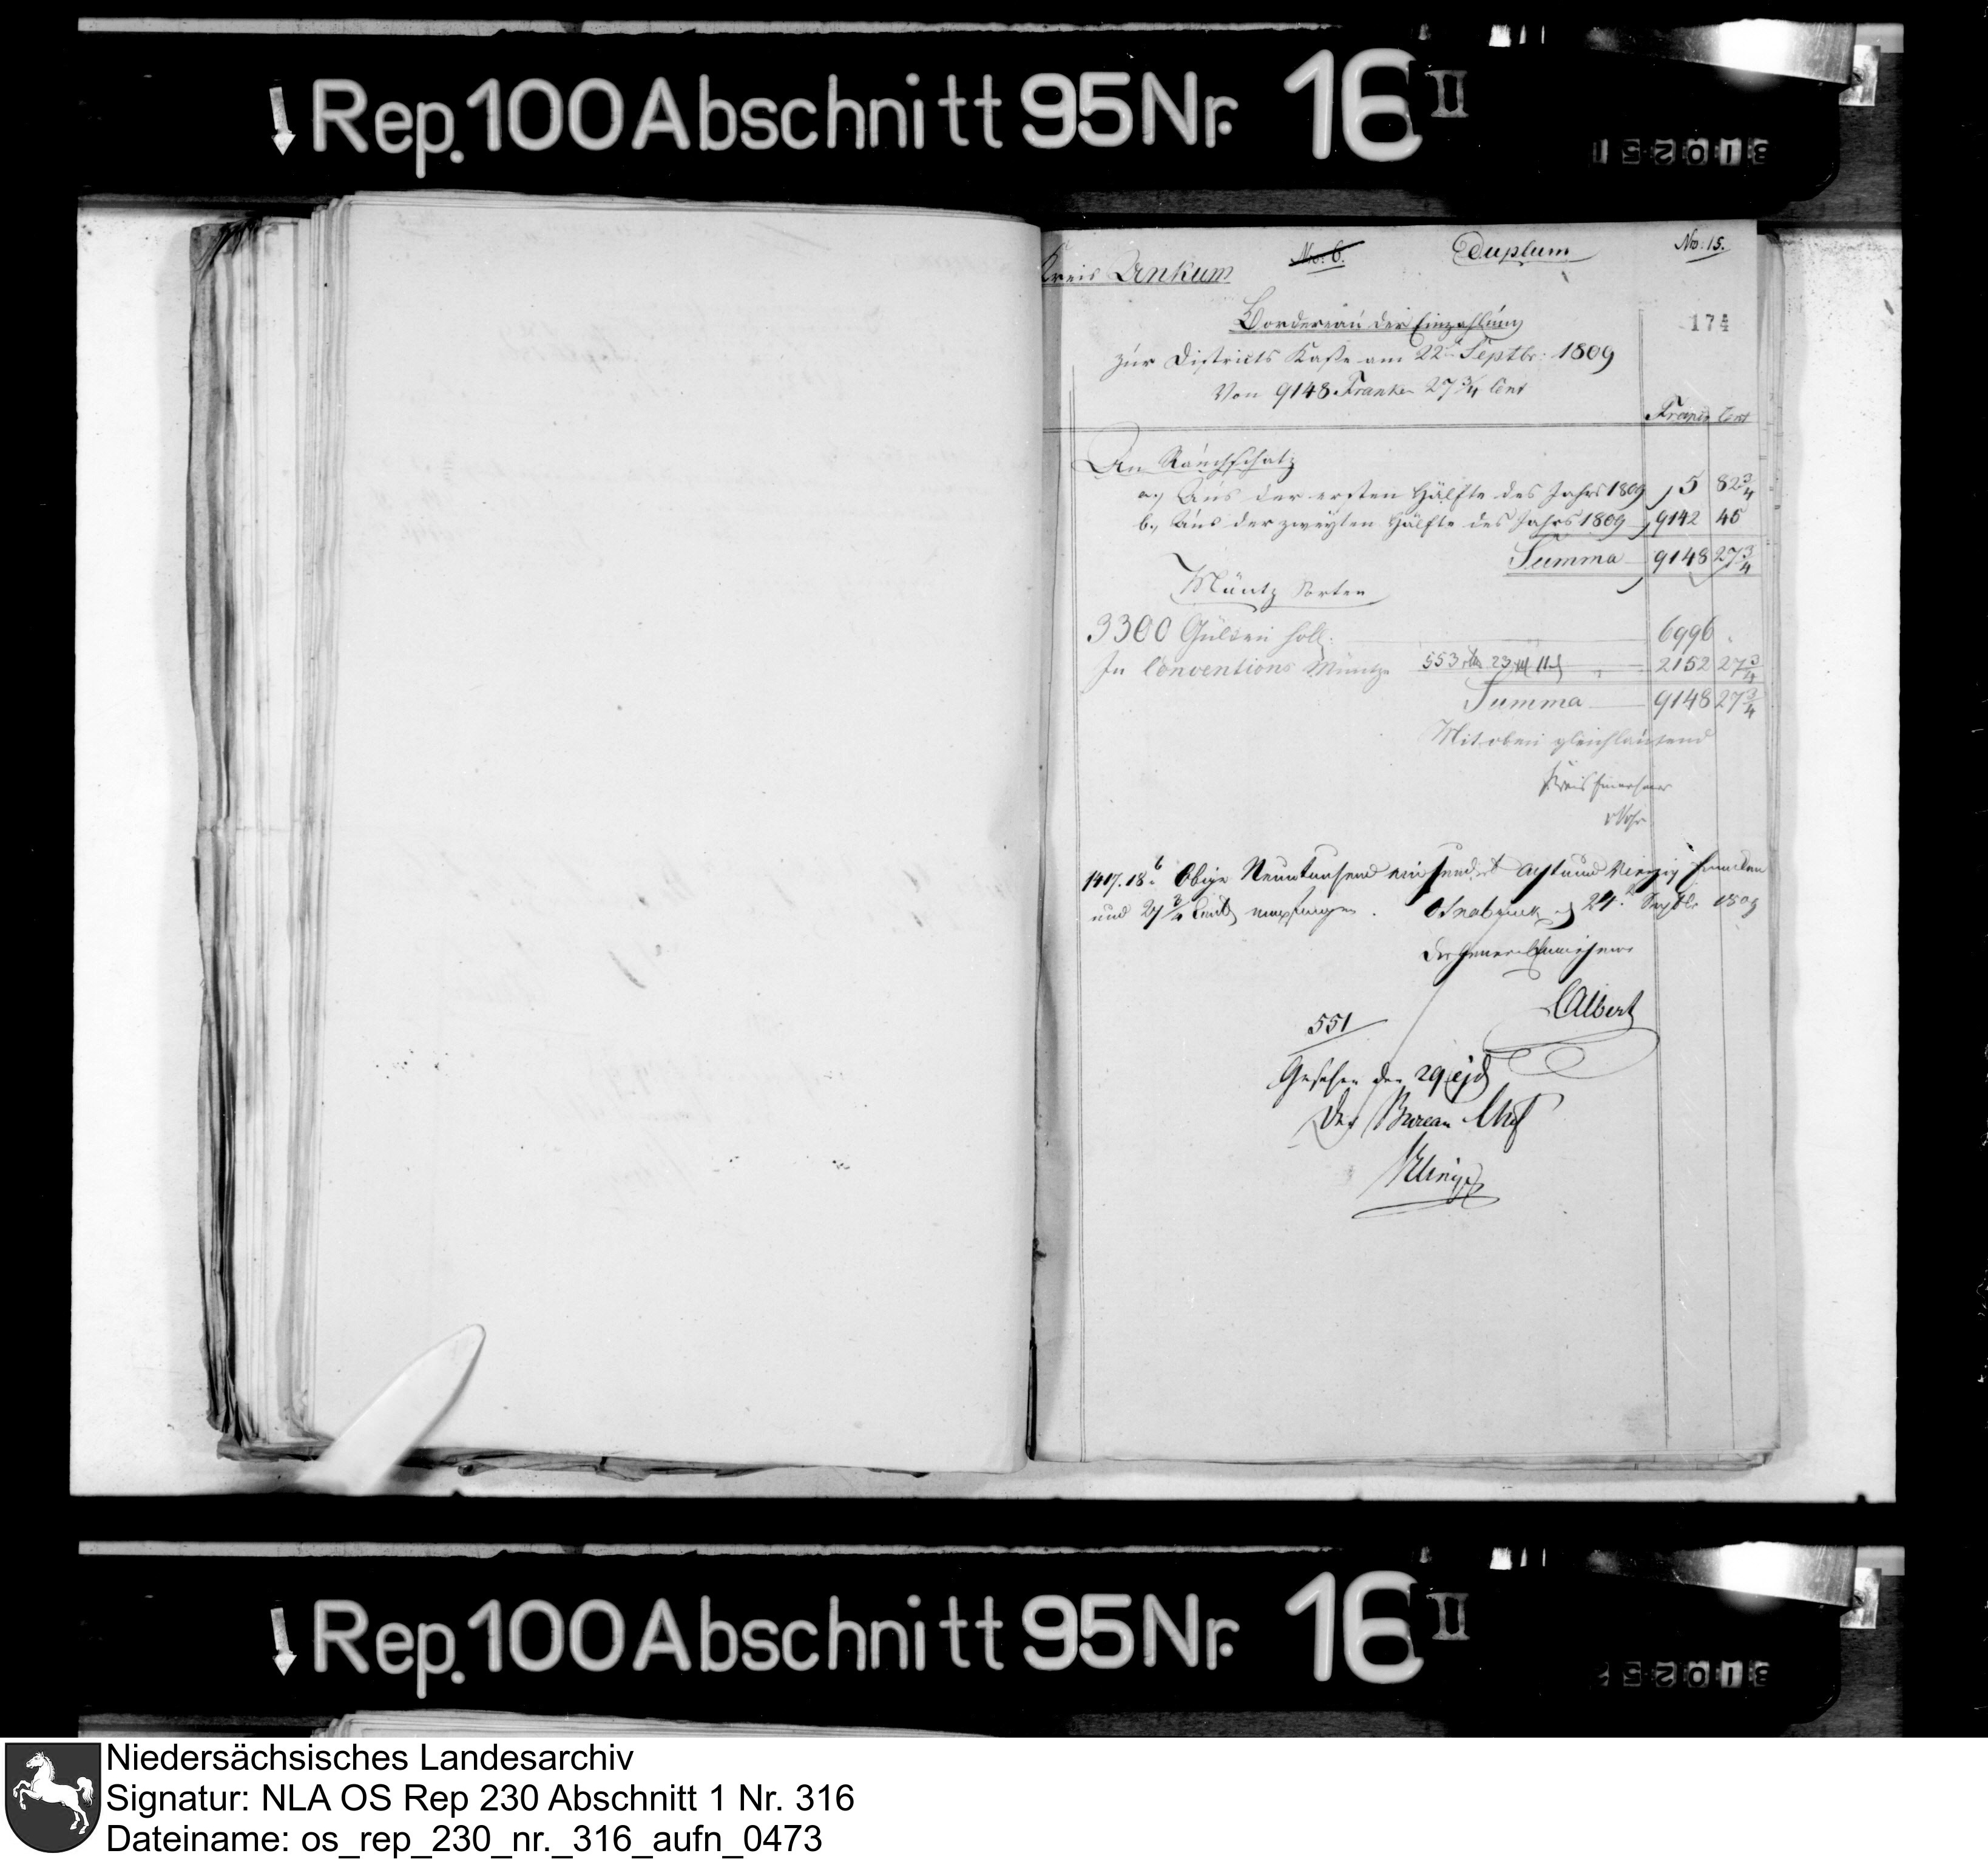 Rep. 100 Abschnitt 95 Nr. 16 II
Kreis Ankum
No: 6.
Duplum
No: 15.
174
Bordereau der Einzahlung
zur Districts Kasse am 22ten Septbr: 1809
Von 9148 Franken 27 3/4 Cent
Franken Cent
An Rauchschatz
a., Aus der ersten Hälfte des Jahrs 1809 5 82 3/4
b., Aus der zweyten Hälfte des Jahrs 1809 9142 45
Summa 9148 27 3/4
Müntz Sorten
3300 Gulden holl: 6996
In Conventions Müntze 553 23 11 2152 27 3/4
Summa 9148 27 3/4
Mit oben gleichlautend
Kreis Einnehmer
Obige Neuntausend ein hundert Acht und Vierzig Franken
und 27 3/4 Cent empfangen. Osnabrück 24. Septbr 1809
Der General Einnehmer
CAlbert
551
Gesehen den 29 ejd
Der Bureau Chef
Rep. 100 Abschnitt 95 Nr. 16 II
Niedersächsisches Landesarchiv
Signatur: NLA OS Rep 230 Abschnitt 1 Nr. 316
Dateiname: os_rep_230_nr._316_aufn_0473